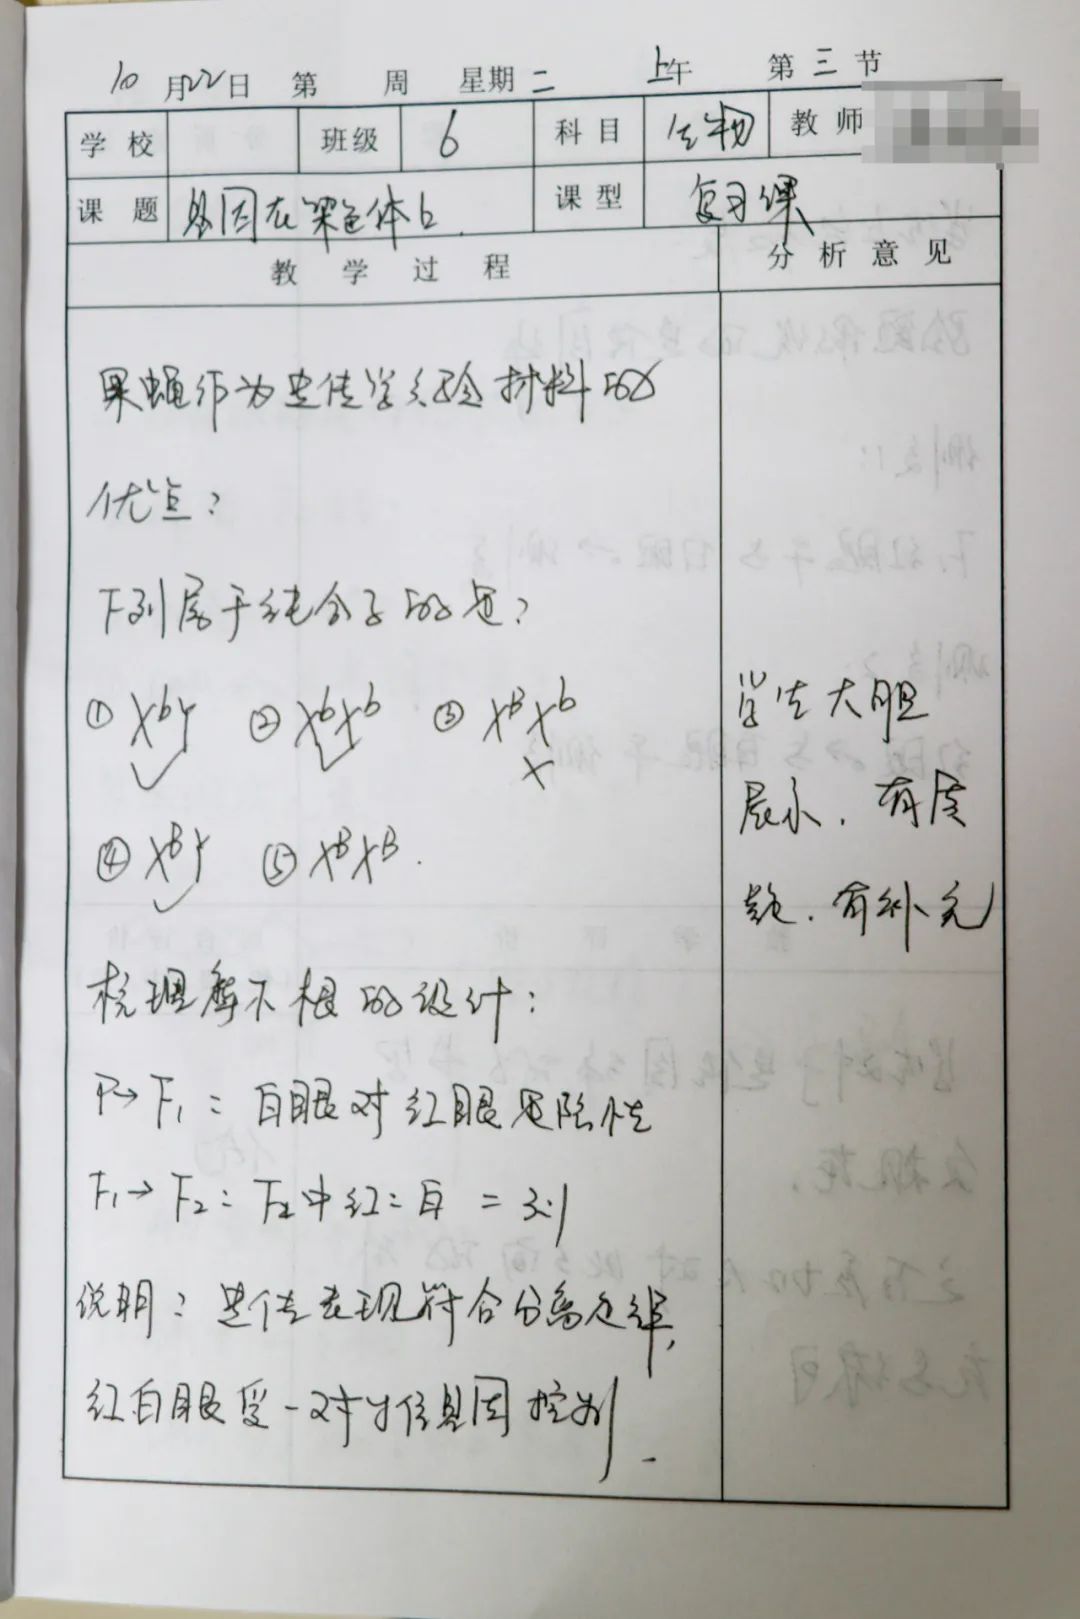 10月22日 第 周 星期二 上午 第三节
学校 班级 6 科目 生物 教师
课题 基因在染色体上. 课型 复习课
教学过程 分析意见
果蝇作为遗传学实验材料的
优点?
下列属于纯合子的是?
① XᵇY ② XᵇXᵇ ③ XᴮXᵇ
④ XᴮY ⑤ XᴮXᴮ.
学生大胆
展示.有质
疑.有补充
梳理摩尔根的设计:
P→F₁:白眼对红眼是隐性
F₁→F₂:F₂中红:白=3:1
说明?遗传表现符合分离定律,
红白眼受一对等位基因控制.